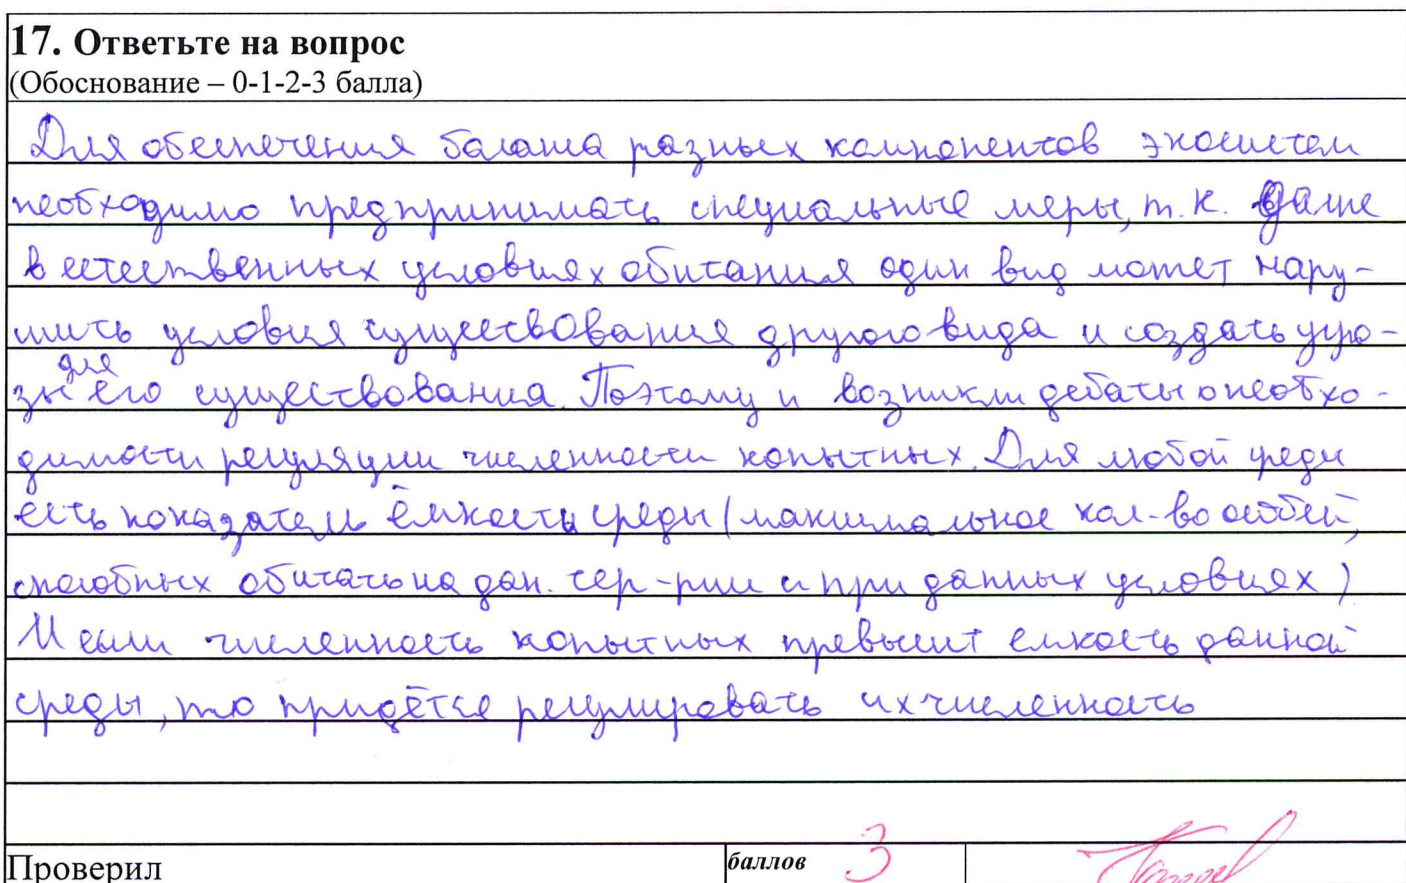 17. Ответьте на вопрос
(Обоснование – 0-1-2-3 балла)
Для обеспечения баланса разных компонентов экосистем
необходимо предпринимать специальные меры, т.к. даже
в естественных условиях обитания один вид может нару-
шить условия существования другого вида и создать угро-
зы для его существования. Поэтому и возникли дебаты о необхо-
димости регуляции численности копытных. Для любой среды
есть показатель ёмкости среды (максимальное кол-во особей,
способных обитать на дан. тер-рии и при данных условиях)
И если численность копытных превысит емкость данной
среды, то придётся регулировать их численность
Проверил
баллов 3